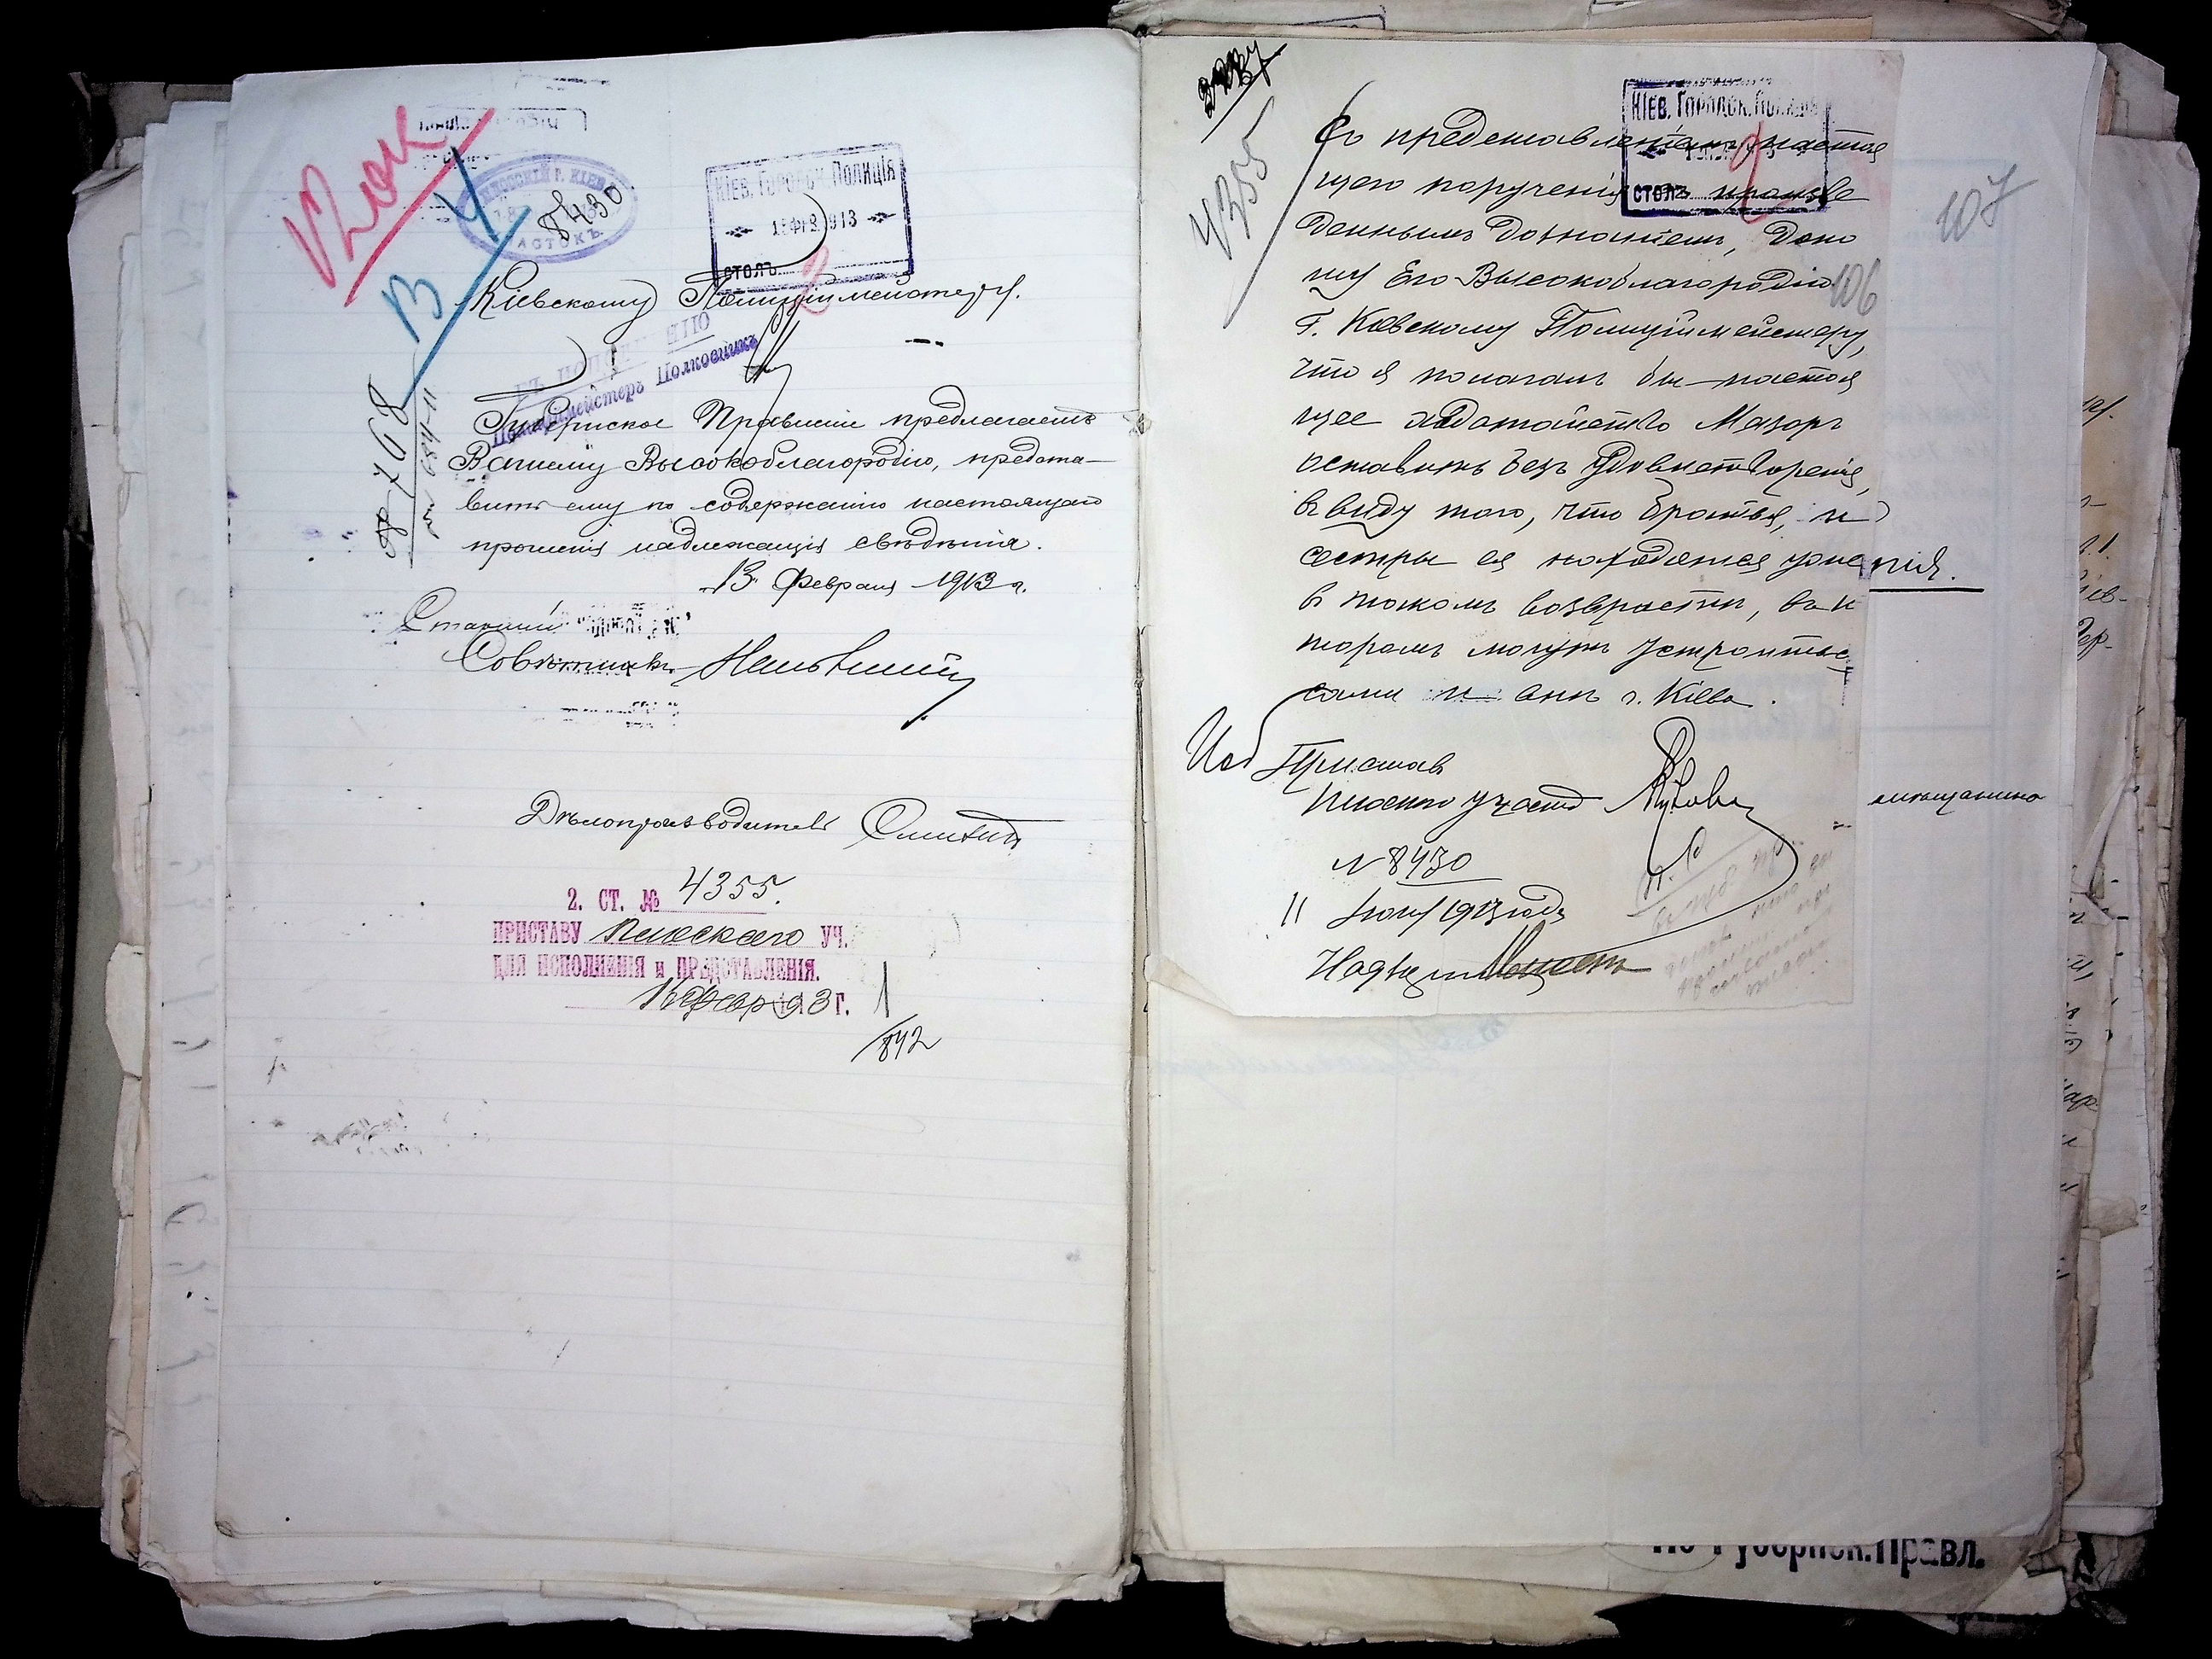 8430
КІЕВ. ГОРОДСК. ПОЛИЦІЯ
ФЕВ 1913
СТОЛЪ 2
Кіевскому Полиціймейстеру.
Полицеймейстеръ Полковникъ
Губернское Правленіе предлагаетъ
Вашему Высокоблагородію, предста-
вить ему по содержанію настоящаго
прошенія надлежащія свѣдѣнія.
13 Февраля 1913 г.
Старшій
Совѣтникъ
Дѣлопроизводитель
2. СТ. № 4355.
ПРИСТАВУ Плоскаго УЧ.
ДЛЯ ИСПОЛНЕНІЯ и ПРЕДСТАВЛЕНІЯ.
1913 Г.
1
842
4355
КІЕВ. ГОРОДСК. ПОЛИЦІЯ
СТОЛЪ
107
Съ представленіемъ настоя
щаго порученія съ произве
деннымъ дознаніемъ, доно
шу Его Высокоблагородію
106
Г. Кіевскому Полиціймейстеру,
что я полагалъ бы настоя
щее ходатайство Мазоръ
оставить безъ удовлетворенія,
въ виду того, что братья, и
сестры ея находятся уже
нія.
въ такомъ возврастѣ, въ к
торомъ могутъ устроиться
сами и внѣ г. Кіева.
Приставъ
Плоскаго участк
мѣщанина
№ 8430
11 1913 года
Надзират
По Губернск. Правл.